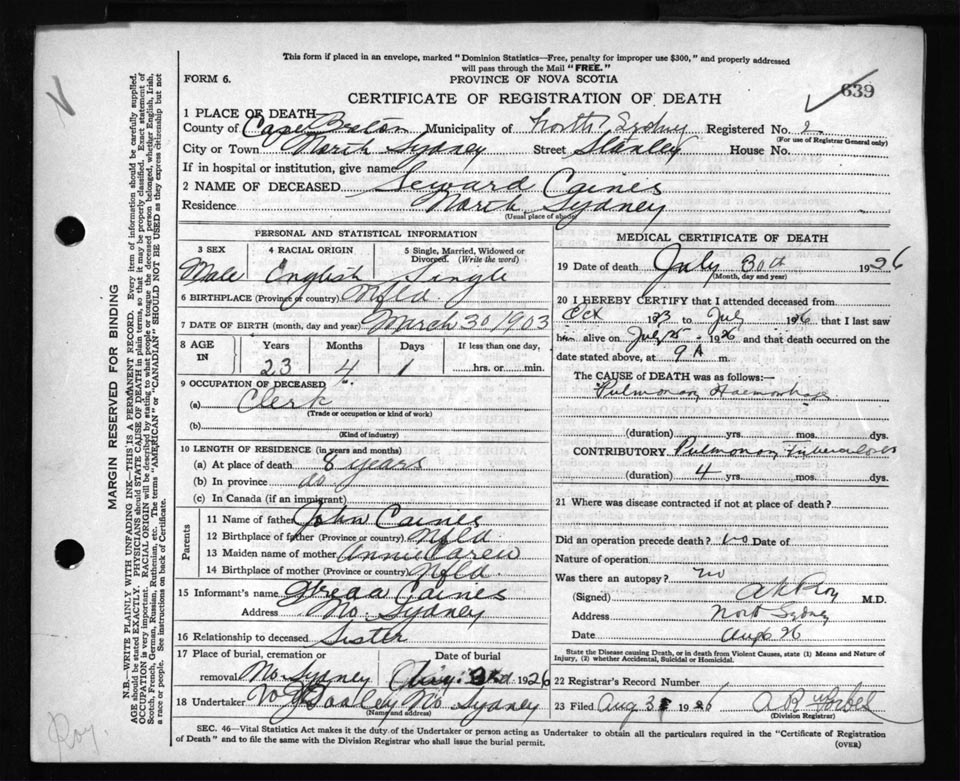 This form if placed in an envelope, marked "Dominion Statistics—Free, penalty for improper use $300," and properly addressed
will pass through the Mail "FREE."
FORM 6.
PROVINCE OF NOVA SCOTIA
639
CERTIFICATE OF REGISTRATION OF DEATH
1 PLACE OF DEATH—
County of Cape Breton Municipality of North Sydney Registered No. 2
(For use of Registrar General only)
City or Town North Sydney Street Stanley House No.
If in hospital or institution, give name
2 NAME OF DECEASED Seward Caines
Residence North Sydney
(Usual place of abode)
PERSONAL AND STATISTICAL INFORMATION
3 SEX 4 RACIAL ORIGIN 5 Single, Married, Widowed or Divorced. (Write the word)
Male English Single
6 BIRTHPLACE (Province or country) Nfld.
7 DATE OF BIRTH (month, day and year) March 30 1903
8 AGE IN Years Months Days If less than one day,
23 4 1 hrs. or min.
9 OCCUPATION OF DECEASED
(a) Clerk
(Trade or occupation or kind of work)
(b)
(Kind of industry)
10 LENGTH OF RESIDENCE (in years and months)
(a) At place of death 8 years
(b) In province do
(c) In Canada (if an immigrant)
Parents
11 Name of father John Caines
12 Birthplace of father (Province or country) Nfld
13 Maiden name of mother Annie Carew
14 Birthplace of mother (Province or country) Nfld.
15 Informant's name Caines
Address No. Sydney
16 Relationship to deceased Sister
17 Place of burial, cremation or removal Date of burial
No. Sydney Aug. 1926
18 Undertaker Dooley No Sydney
(Name and address)
MEDICAL CERTIFICATE OF DEATH
19 Date of death July 30th 1926
(Month, day and year)
20 I HEREBY CERTIFY that I attended deceased from
Oct 1923 to July 1926 that I last saw
him alive on July 25 1926 and that death occurred on the
date stated above, at 9 A m.
The CAUSE of DEATH was as follows:
Pulmonary Haemorrhage
(duration) yrs. mos. dys.
CONTRIBUTORY Pulmonary Tuberculosis
(duration) 4 yrs. mos. dys.
21 Where was disease contracted if not at place of death?
Did an operation precede death? no Date of
Nature of operation
Was there an autopsy? no
(Signed) M.D.
Address North Sydney
Date Aug 26
State the Disease causing Death, or in death from Violent Causes, state (1) Means and Nature of
Injury, (2) whether Accidental, Suicidal or Homicidal.
22 Registrar's Record Number
23 Filed Aug 3 1926
(Division Registrar)
SEC. 46—Vital Statistics Act makes it the duty of the Undertaker or person acting as Undertaker to obtain all the particulars required in the "Certificate of Registration
of Death" and to file the same with the Division Registrar who shall issue the burial permit.
(OVER)
MARGIN RESERVED FOR BINDING
N.B.—WRITE PLAINLY WITH UNFADING INK—THIS IS A PERMANENT RECORD. Every item of information should be carefully supplied.
AGE should be stated EXACTLY. PHYSICIANS should STATE CAUSE OF DEATH in plain terms, so that it may be properly classified. Exact statement of
OCCUPATION is very important. RACIAL ORIGIN will be described by stating to what people or tongue the deceased person belonged, whether English, Irish,
Scotch, French, German, Russian, Ruthenian, etc. The terms "AMERICAN" or "CANADIAN" SHOULD NOT BE USED as they express citizenship but not
a race or people. See instructions on back of Certificate.
Roy.